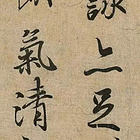 詠亦足
氣清